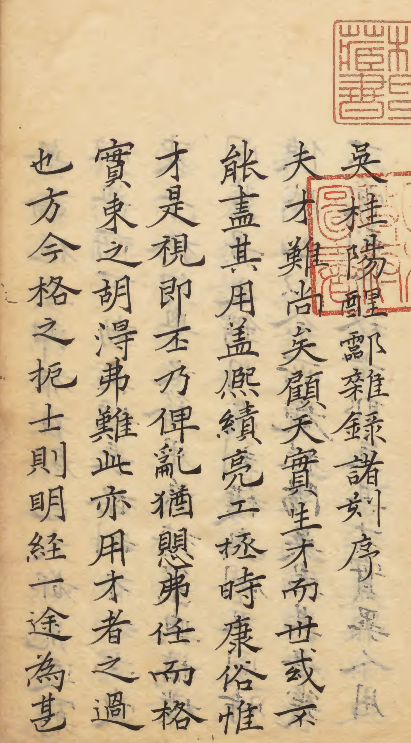 吳桂陽醒鄮雜錄諸刻序
夫才難尚矣顧天實生才而世或不
能盡其用蓋熈績亮工拯時康俗惟
才是視即丕乃俾亂猶愳弗任而格
實束之胡淂弗難此亦用才者之過
也方今格之扼士則明經一途為甚
藏書